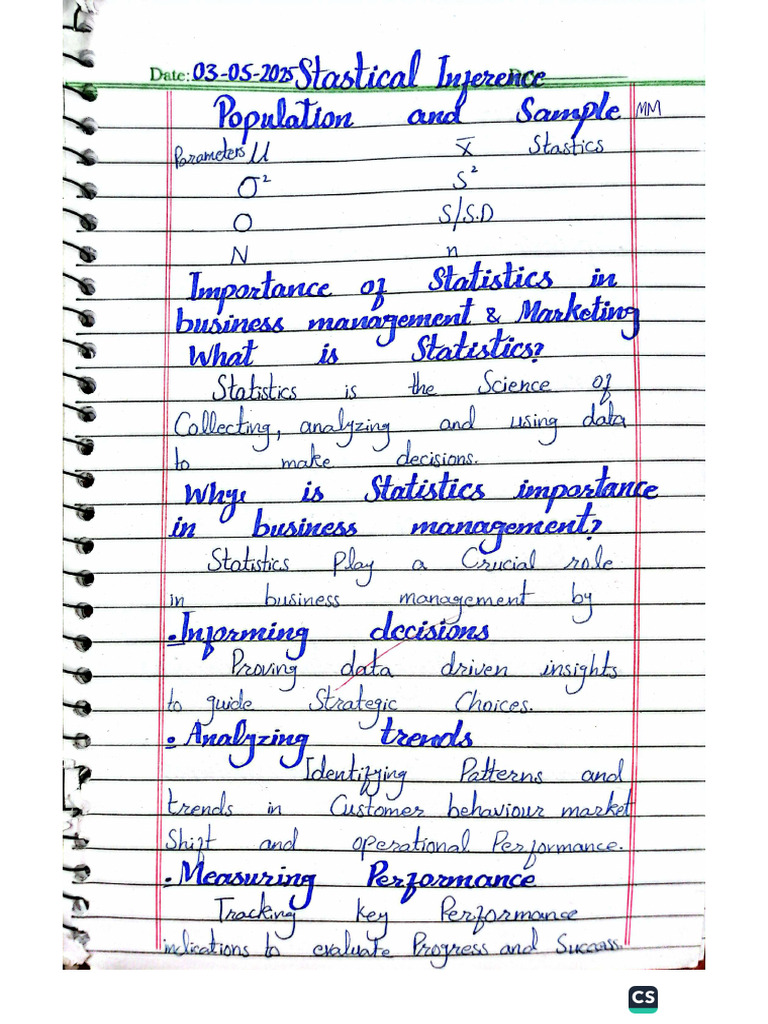 Date: 03-05-2025 Stastical Inference
Population and Sample MM
Parameters μ x̄ Stastics
σ² S²
σ S/S.D
N n
Importance of Statistics in
business management & Marketing
What is Statistics?
Statistics is the Science of
Collecting, analyzing and using data
to make decisions.
Why is Statistics importance
in business management?
Statistics Play a Crucial role
in business management by
• Informing decisions
Proving data driven insights
to guide Strategic Choices.
• Analyzing trends
Identifying Patterns and
trends in Customer behaviour market
Shift and operational Performance.
• Measuring Performance
Tracking key Performance
indications to evaluate Progress and Success.
CS